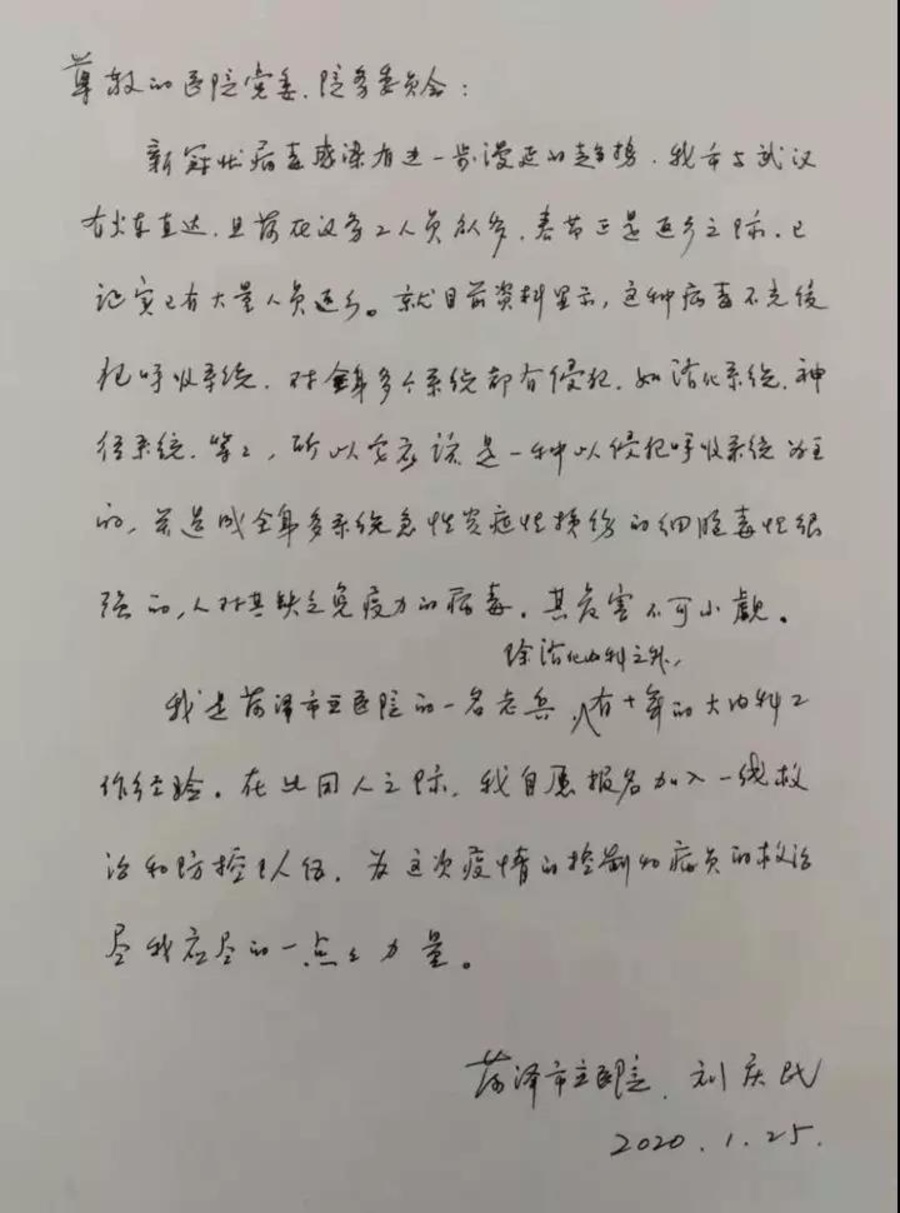 尊敬的医院党委、院务委员会：
新冠状病毒感染有进一步漫延的趋势，我市与武汉
有火车直达，且菏在汉务工人员众多，春节正是返乡之际，已
证实已有大量人员返乡。就目前资料显示，这种病毒不光侵
犯呼吸系统，对全身多个系统都有侵犯，如消化系统、神
经系统，等等，所以它应该是一种以侵犯呼吸系统为主
的，并造成全身多系统急性炎症性损伤的细胞毒性很
强的，人对其缺乏免疫力的病毒，其危害不可小觑。
除消化内科之外，
我是菏泽市立医院的一名老兵，有十年的大内科工
作经验。在此用人之际，我自愿报名加入一线救
治和防控队伍，为这次疫情的控制和病员的救治
尽我应尽的一点点力量。
菏泽市立医院、刘庆民
2020.1.25.